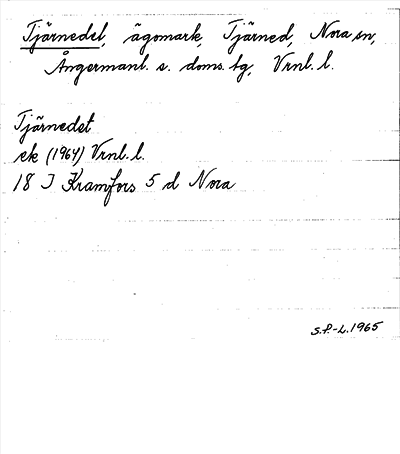 Tjärnedet, ägomark, Tjärned, Nora sn,
Ångermanl. s. doms. tg, Vrnl. l.
Tjärnedet
ek (1964) Vrnl. l.
18 J Kramfors 5 d Nora
S.P.-L. 1965